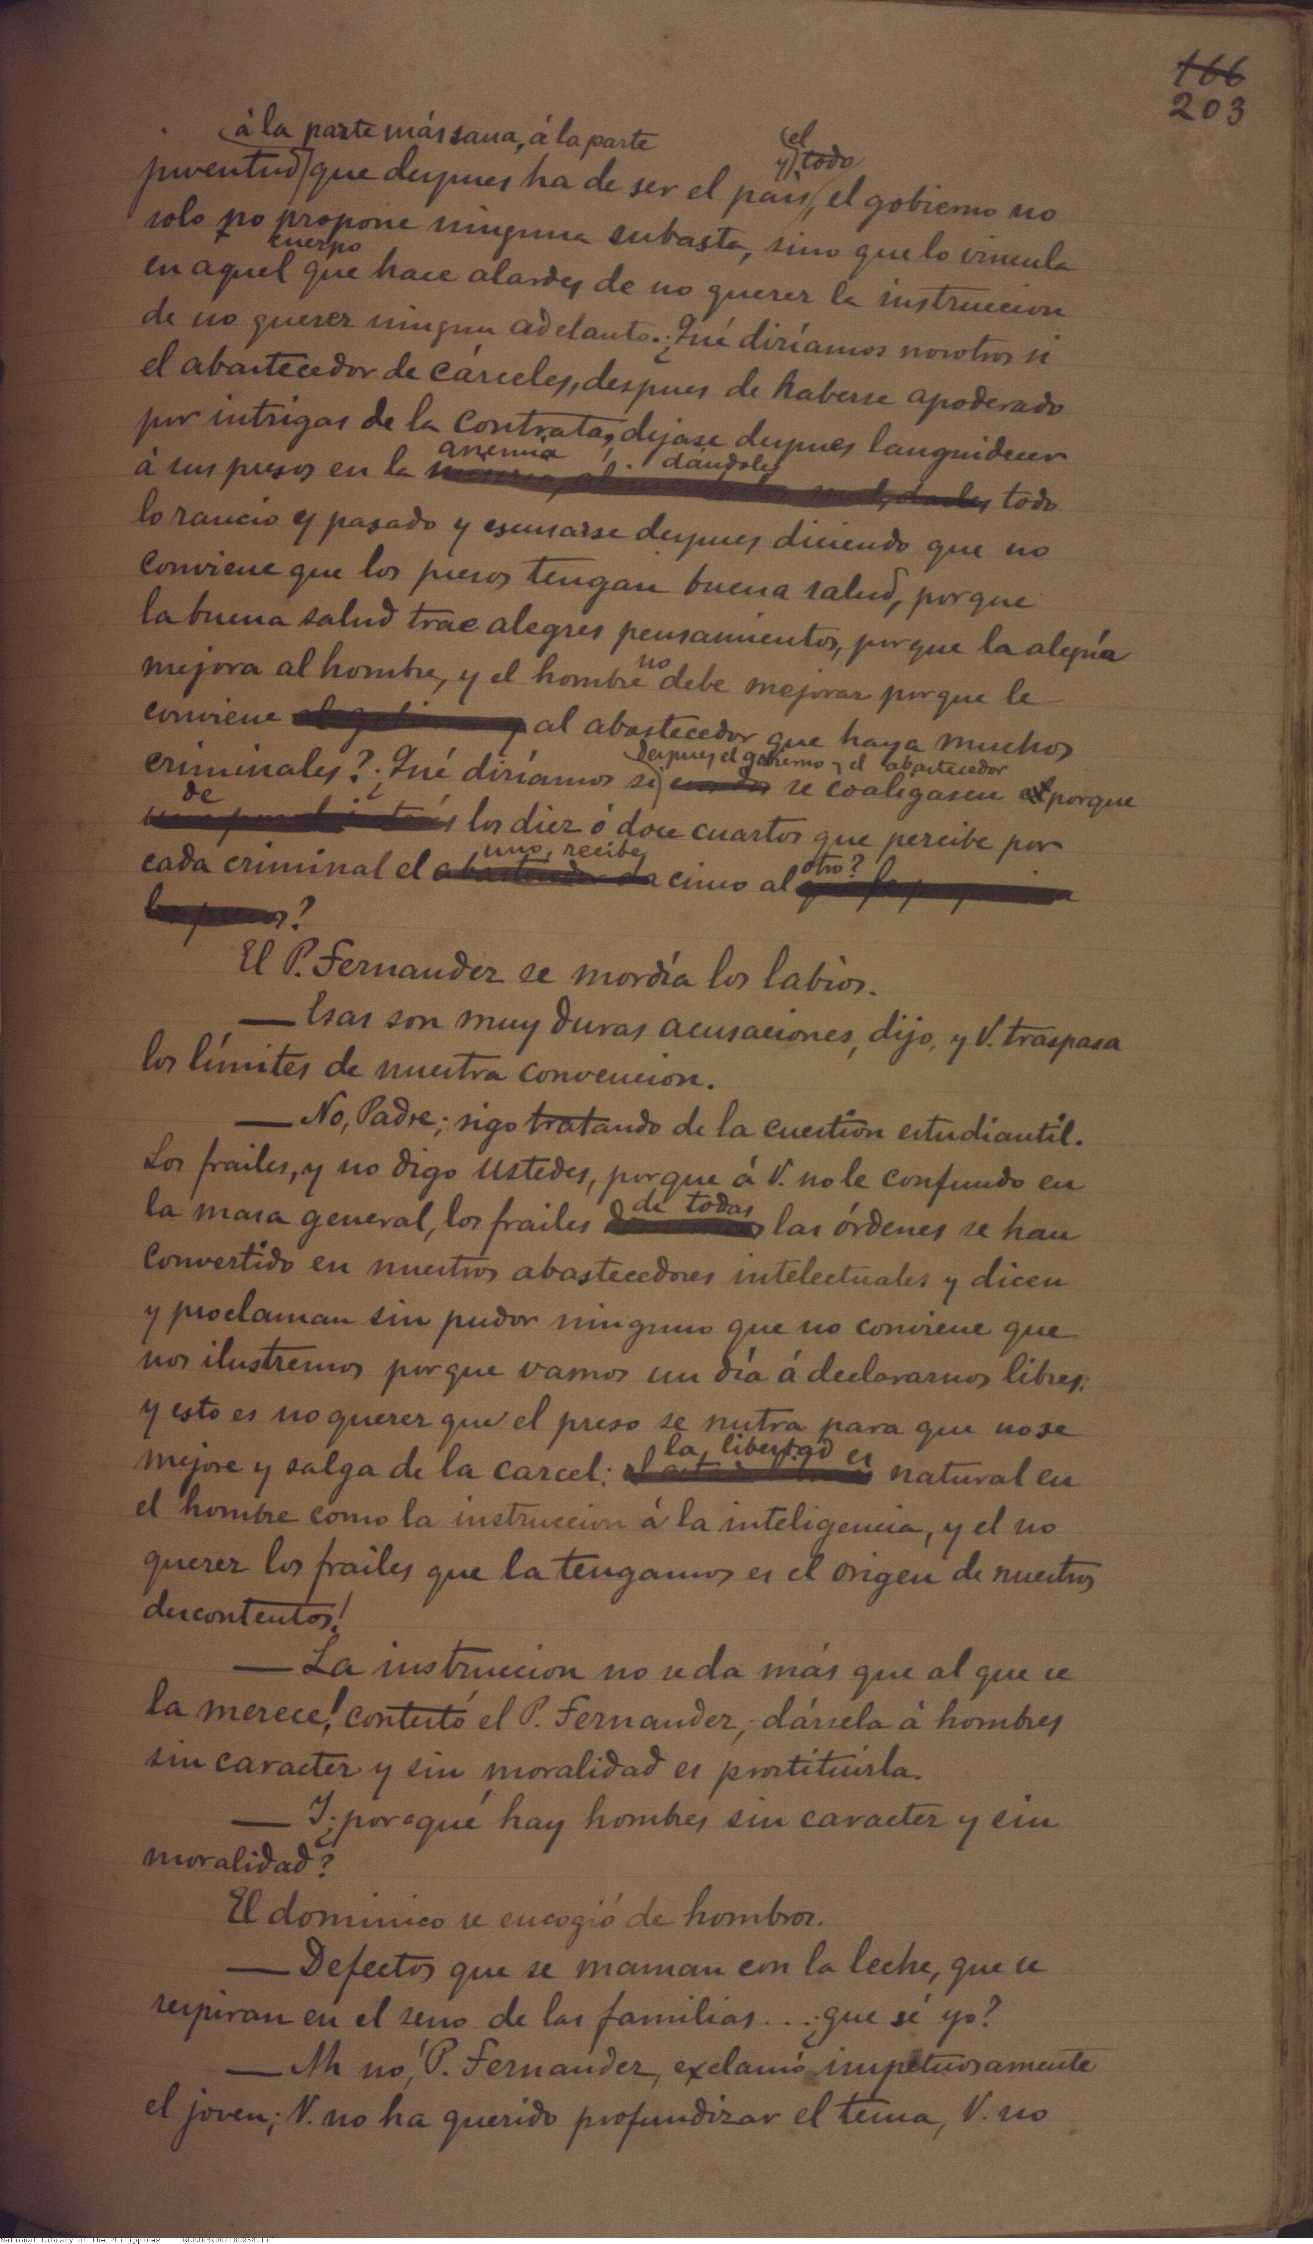 166
203
á la parte más sana, á la parte
y el todo
juventud que despues ha de ser el pais, el gobierno no
solo no propone ninguna subasta, sino que lo vincula
cuerpo
en aquel que hace alardes de no querer la instruccion
de no querer ningun adelanto. ¿Qué diríamos nosotros si
el abastecedor de cárceles, despues de haberse apoderado
por intrigas de la contrata, dejase despues languidecer
anemia dándoles
á sus presos en la todo
lo rancio y pasado y escusarse despues diciendo que no
conviene que los presos tengan buena salud, porque
la buena salud trae alegres pensamientos, porque la alegría
no
mejora al hombre, y el hombre debe mejorar porque le
conviene al abastecedor que haya muchos
despues el gobierno y el abastecedor
criminales? ¿Qué diríamos si se coaligasen porque
de
los diez ó doce cuartos que percibe por
uno, recibe otro?
cada criminal el cinco al
?
El P. Fernandez se mordía los labios.
— Esas son muy duras acusaciones, dijo, y V. traspasa
los límites de nuestra convencion.
— No, Padre; sigo tratando de la cuestion estudiantil.
Los frailes, y no digo ustedes, porque á V. no le confundo en
de todas
la masa general, los frailes las órdenes se han
convertido en nuestros abastecedores intelectuales y dicen
y proclaman sin pudor ninguno que no conviene que
nos ilustremos porque vamos un día á declararnos libres:
y esto es no querer que el preso se nutra para que no se
la libertad es
mejore y salga de la carcel: natural en
el hombre como la instruccion á la inteligencia, y el no
querer los frailes que la tengamos es el origen de nuestros
descontentos!
— La instruccion no se da más que al que se
la merece! contestó el P. Fernandez; dársela á hombres
sin caracter y sin moralidad es prostituirla.
— Y ¿por qué hay hombres sin caracter y sin
moralidad?
El dominico se encogió de hombros.
— Defectos que se maman con la leche, que se
respiran en el seno de las familias... ¿que sé yo?
— Ah no, P. Fernandez, exclamó impetuosamente
el joven; V. no ha querido profundizar el tema, V. no